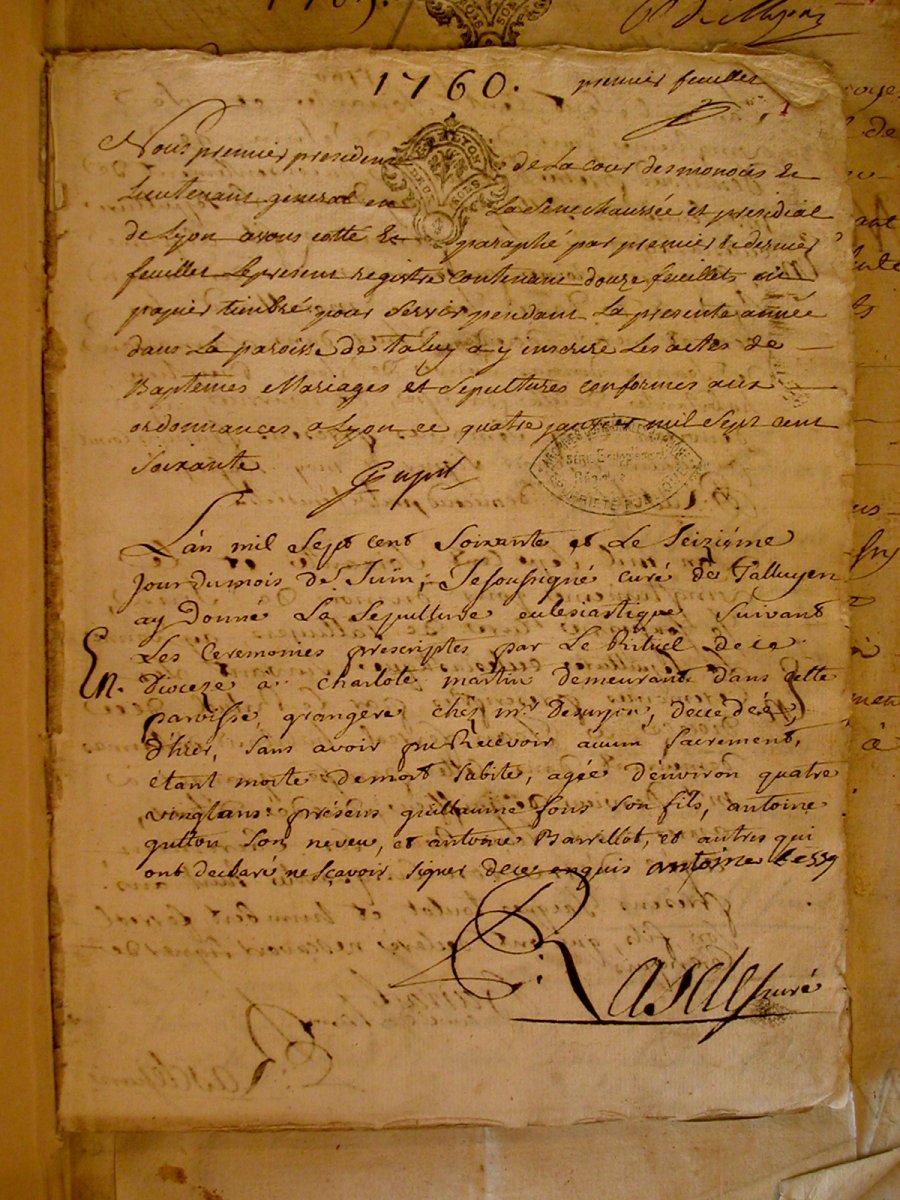 1760. premier feuillet
Nous premier president de La cour des monoies &
Lieutenant general en La Senechaussée et presidial
de Lyon avons cotté & paraphé par premier & dernier
feuillet Le present registre contenant douze feuillets en
papier timbré pour servir pendant La presente année
dans La paroisse de taluy a y inscrire Les actes de
Baptemes Mariages et sepultures conformes aux
ordonnances a Lyon ce quatre janvier mil sept cent
soixante
Pupil
L'an mil sept cent soixante et Le seiziéme
jour du mois de Juin, Je soussigné curé de Talluyen
ay Donné La sepulture eclesiastique suivant
Les ceremonies prescriptes par Le Rituel de ce
En. Dioceze a charlote martin demeurant dans cette
paroisse, grangere chés mr. , decedée
d'hier, sans avoir pu Recevoir aucun sacrement,
étant morte de mort subite, agée d'environ quatre
vingt ans: présens guillaume fons son fils, antoine
gutton son neveu, et antoine Barrillot, et autres qui
ont declaré ne sçavoir signer de ce enquis antoine
curé